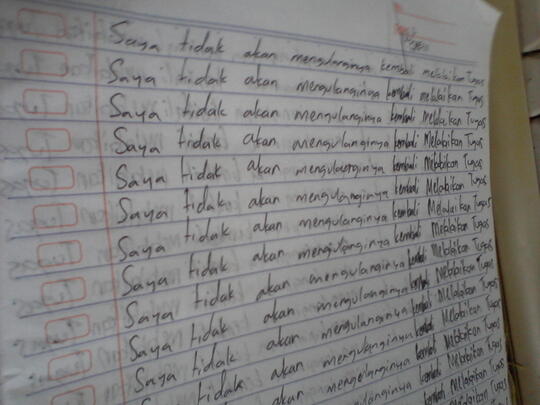 Saya tidak akan mengulanginya kembali melalaikan Tugas
Saya tidak akan mengulanginya kembali melalaikan Tugas
Saya tidak akan mengulanginya kembali melalaikan Tugas
Saya tidak akan mengulanginya kembali Melalaikan Tugas
Saya tidak akan mengulanginya kembali Melalaikan Tugas
Saya tidak akan mengulanginya kembali Melalaikan Tugas
Saya tidak akan mengulanginya kembali Melalaikan Tugas
Saya tidak akan mengulanginya kembali Melalaikan Tugas
Saya tidak akan mengulanginya kembali Melalaikan Tugas
Saya tidak akan mengulanginya kembali Melalaikan Tugas
tidak akan mengulanginya kembali Melalaikan Tugas
akan mengulanginya kembali Melalaikan Tugas